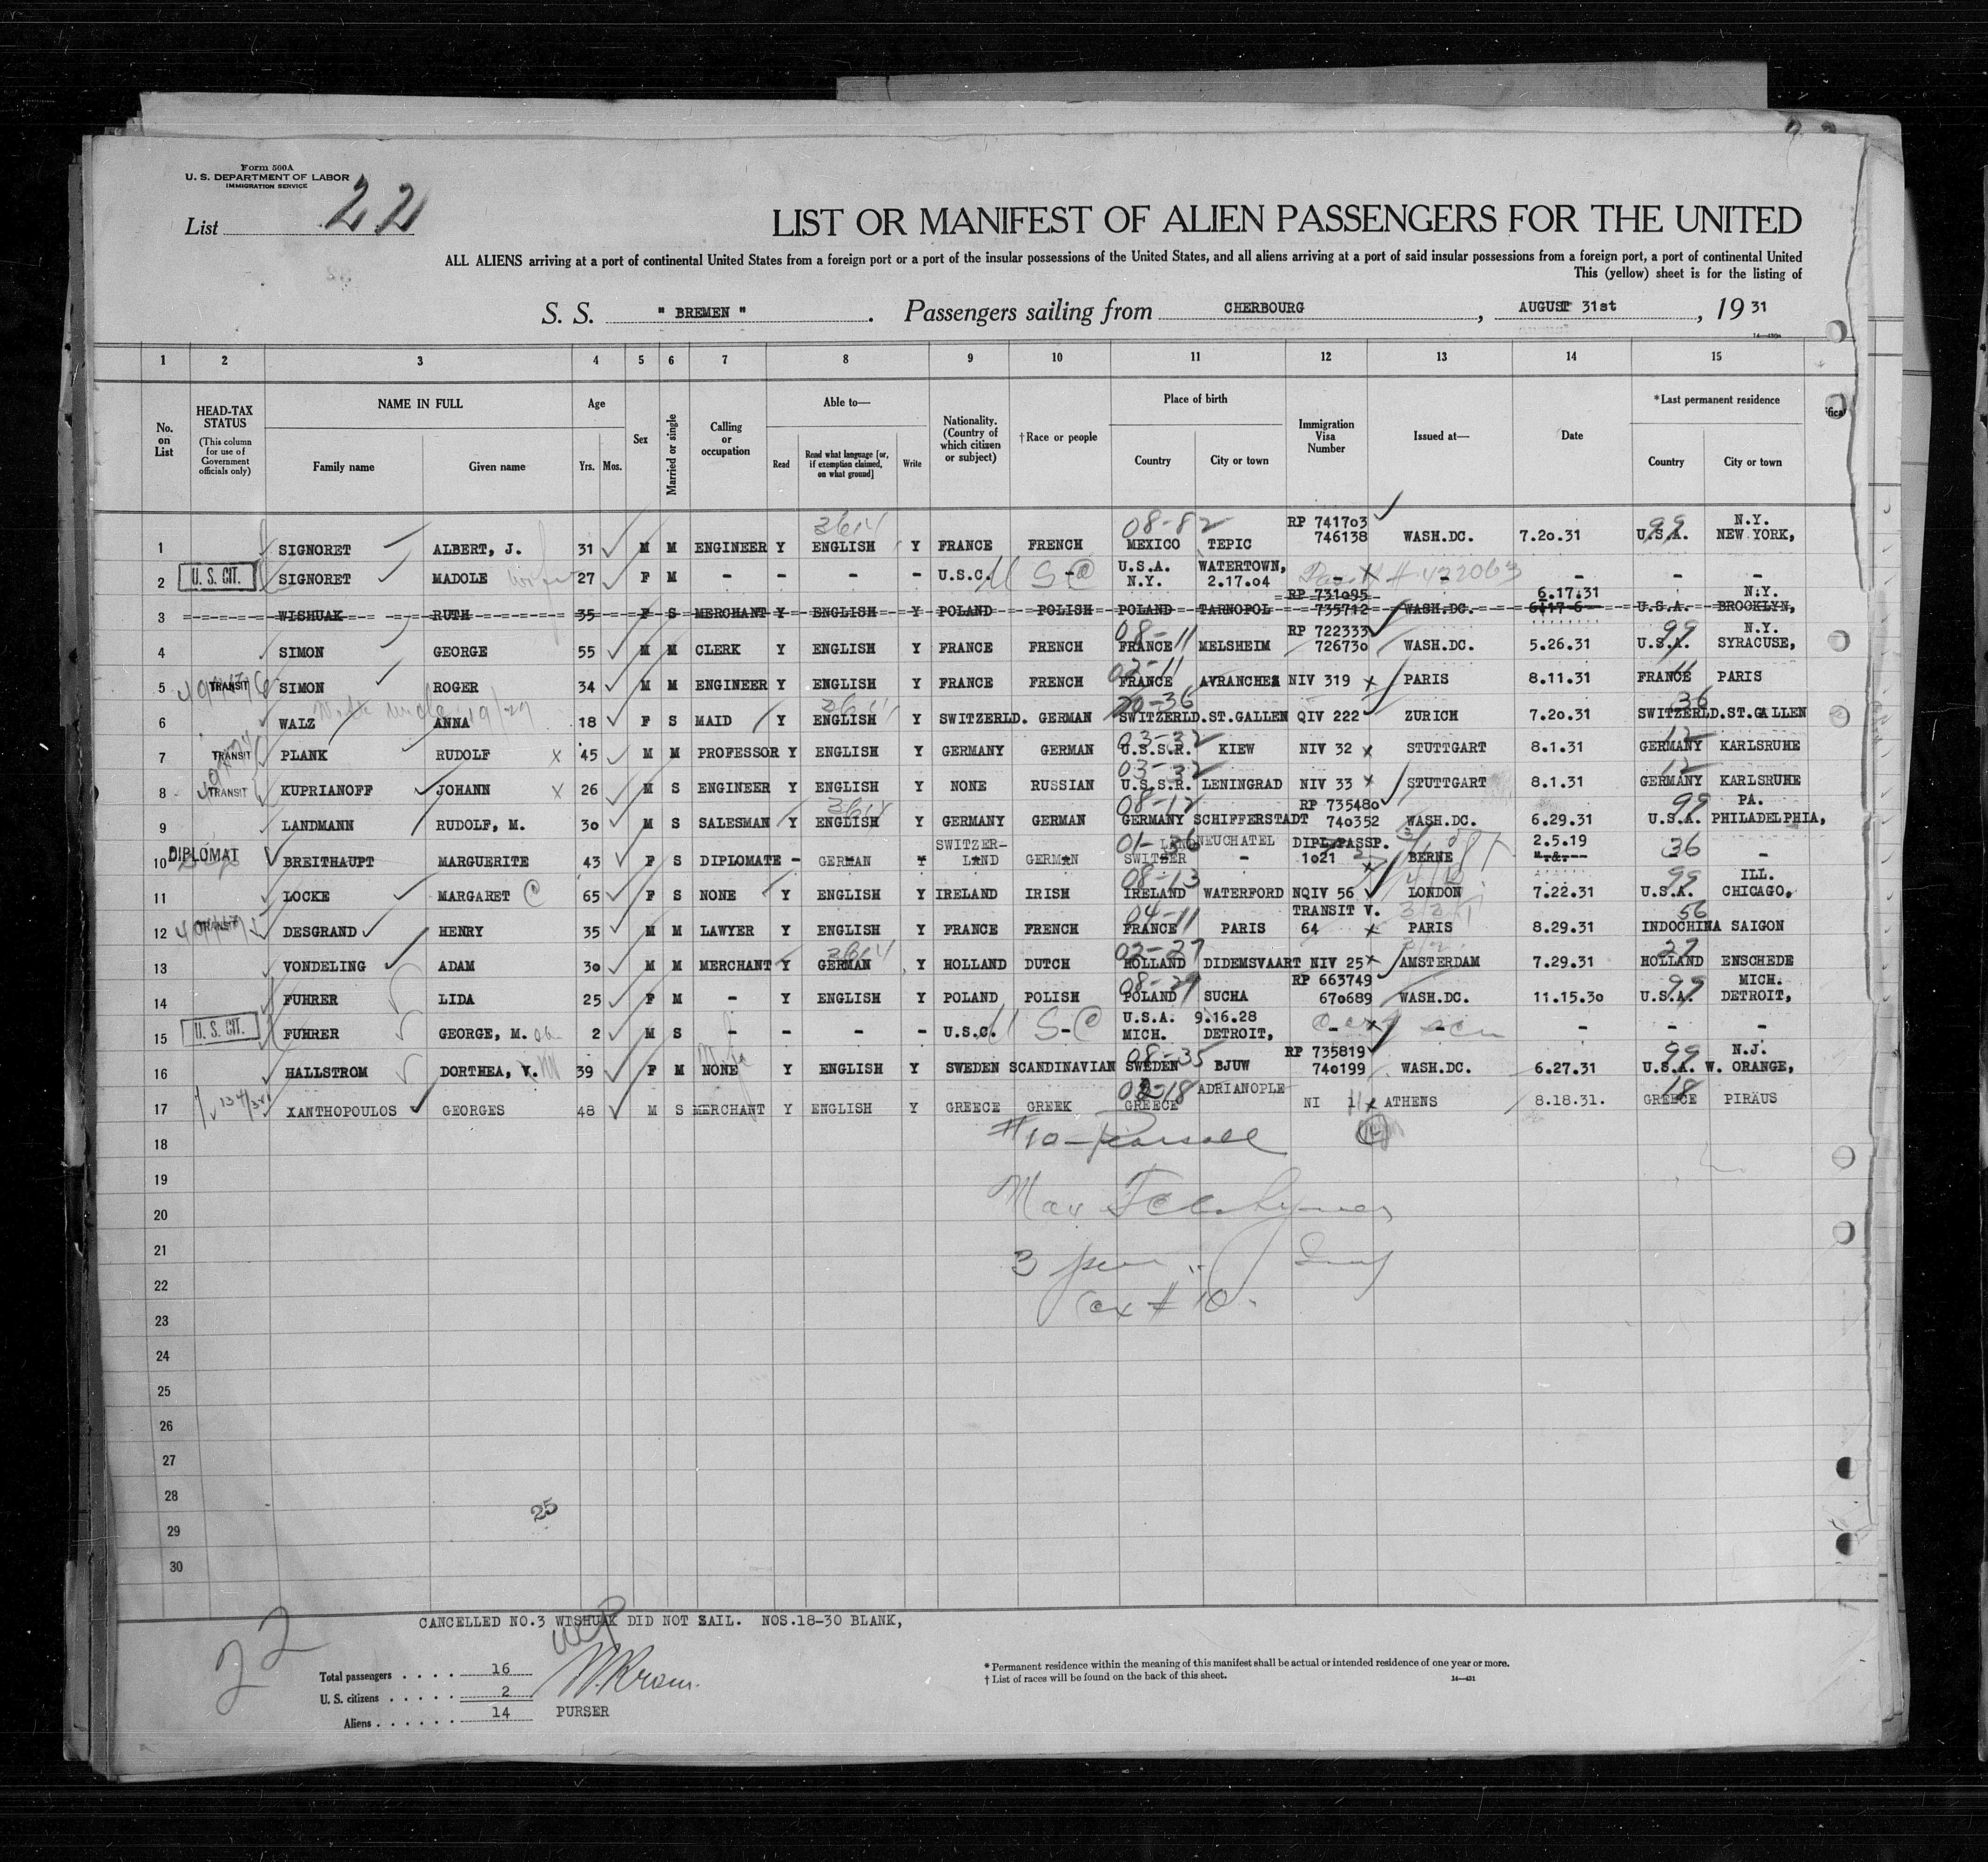 Form 500A
U. S. DEPARTMENT OF LABOR
IMMIGRATION SERVICE
List 22
LIST OR MANIFEST OF ALIEN PASSENGERS FOR THE UNITED
ALL ALIENS arriving at a port of continental United States from a foreign port or a port of the insular possessions of the United States, and all aliens arriving at a port of said insular possessions from a foreign port, a port of continental United
This (yellow) sheet is for the listing of
S. S. " BREMEN " . Passengers sailing from CHERBOURG , AUGUST 31st , 19 31
1 2 3 4 5 6 7 8 9 10 11 12 13 14 15
No. on List
HEAD-TAX STATUS (This column for use of Government officials only)
NAME IN FULL Family name Given name
Age Yrs. Mos.
Sex
Married or single
Calling or occupation
Able to— Read Read what language [or, if exemption claimed, on what ground] Write
Nationality. (Country of which citizen or subject)
†Race or people
Place of birth Country City or town
Immigration Visa Number
Issued at—
Date
*Last permanent residence Country City or town
1 SIGNORET ALBERT, J. 31 M M ENGINEER Y ENGLISH Y FRANCE FRENCH 08-82 MEXICO TEPIC RP 741703 746138 WASH.DC. 7.20.31 99 U.S.A. N.Y. NEW YORK,
2 U. S. CIT. SIGNORET MADOLE wife 27 F M - - - - U.S.C. - U.S.A. N.Y. WATERTOWN, 2.17.04 - - - - -
3 WISHUAK RUTH 35 F S MERCHANT Y ENGLISH Y POLAND POLISH POLAND TARNOPOL RP 731095 735712 WASH.DC. 6.17.31 U.S.A. N.Y. BROOKLYN,
4 SIMON GEORGE 55 M M CLERK Y ENGLISH Y FRANCE FRENCH 08-11 FRANCE MELSHEIM RP 722333 726730 WASH.DC. 5.26.31 99 U.S.A. N.Y. SYRACUSE,
5 TRANSIT SIMON ROGER 34 M M ENGINEER Y ENGLISH Y FRANCE FRENCH 02-11 FRANCE AVRANCHES NIV 319 PARIS 8.11.31 11 FRANCE PARIS
6 WALZ ANNA 18 F S MAID Y ENGLISH Y SWITZERLD. GERMAN 20-36 SWITZERLD.ST.GALLEN QIV 222 ZURICH 7.20.31 36 SWITZERLD.ST.GALLEN
7 TRANSIT PLANK RUDOLF X 45 M M PROFESSOR Y ENGLISH Y GERMANY GERMAN 03-32 U.S.S.R. KIEW NIV 32 STUTTGART 8.1.31 12 GERMANY KARLSRUHE
8 TRANSIT KUPRIANOFF JOHANN X 26 M S ENGINEER Y ENGLISH Y NONE RUSSIAN 03-32 U.S.S.R. LENINGRAD NIV 33 STUTTGART 8.1.31 12 GERMANY KARLSRUHE
9 LANDMANN RUDOLF, M. 30 M S SALESMAN Y ENGLISH Y GERMANY GERMAN 08-12 GERMANY SCHIFFERSTADT RP 735480 740352 WASH.DC. 6.29.31 99 U.S.A. PA. PHILADELPHIA,
10 DIPLOMAT BREITHAUPT MARGUERITE 43 F S DIPLOMATE - GERMAN Y SWITZER-LAND GERMAN 01-36 SWITZERLAND NEUCHATEL - DIPL.PASSP. 1021 BERNE 2.5.19 36 -
11 LOCKE MARGARET 65 F S NONE Y ENGLISH Y IRELAND IRISH 08-13 IRELAND WATERFORD NQIV 56 LONDON 7.22.31 99 U.S.A. ILL. CHICAGO,
12 TRANSIT DESGRAND HENRY 35 M M LAWYER Y ENGLISH Y FRANCE FRENCH 04-11 FRANCE PARIS TRANSIT V. 64 PARIS 8.29.31 56 INDOCHINA SAIGON
13 VONDELING ADAM 30 M M MERCHANT Y GERMAN Y HOLLAND DUTCH 02-27 HOLLAND DIDEMSVAART NIV 25 AMSTERDAM 7.29.31 27 HOLLAND ENSCHEDE
14 FUHRER LIDA 25 F M - Y ENGLISH Y POLAND POLISH 08-29 POLAND SUCHA RP 663749 670689 WASH.DC. 11.15.30 99 U.S.A. MICH. DETROIT,
15 U. S. CIT. FUHRER GEORGE, M. 2 M S - - - - U.S.C. - U.S.A. MICH. 9.16.28 DETROIT, - - - - -
16 HALLSTROM DORTHEA, V. 39 F M NONE Y ENGLISH Y SWEDEN SCANDINAVIAN 08-35 SWEDEN BJUW RP 735819 740199 WASH.DC. 6.27.31 99 U.S.A. N.J. W. ORANGE,
17 XANTHOPOULOS GEORGES 48 M S MERCHANT Y ENGLISH Y GREECE GREEK GREECE ADRIANOPLE NI 1 ATHENS 8.18.31. 18 GREECE PIRÄUS
18
19
20
21
22
23
24
25
26
27
28
29
30
25
CANCELLED NO.3 WISHUAK DID NOT SAIL. NOS.18-30 BLANK,
22
Total passengers . . . . 16
U. S. citizens . . . . . 2
Aliens . . . . . . 14
PURSER
* Permanent residence within the meaning of this manifest shall be actual or intended residence of one year or more.
† List of races will be found on the back of this sheet.
14—431